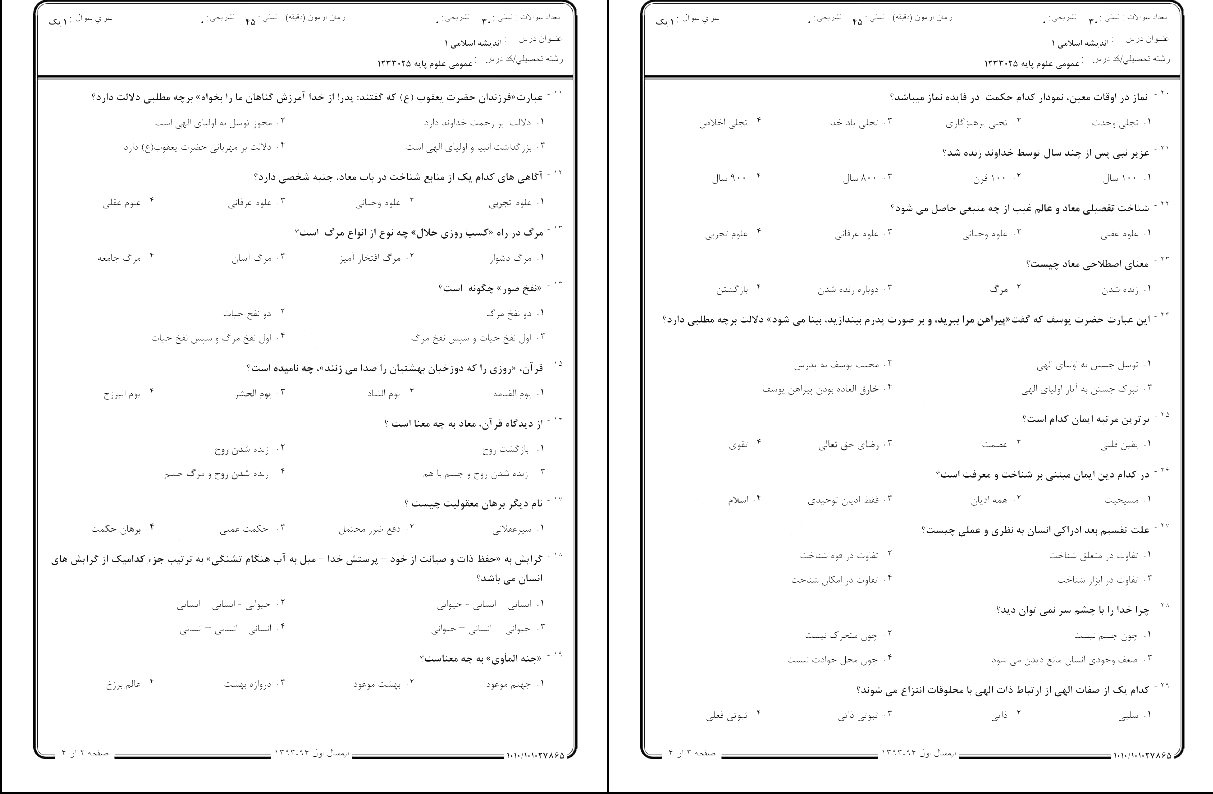 تعداد سوالات : تستی : ۳۰ تشریحی : ۰
زمان آزمون (دقیقه) : تستی : ۴۵ تشریحی : ۰
سری سوال : ۱ یک
عنوان درس : اندیشه اسلامی ۱
رشته تحصیلی/کد درس : عمومی علوم پایه ۱۲۳۳۰۲۵
۱۱- عبارت«فرزندان حضرت یعقوب (ع) که گفتند: پدر! از خدا آمرزش گناهان ما را بخواه» برچه مطلبی دلالت دارد؟
۱. دلالت بر رحمت خداوند دارد ۲. مجوز توسل به اولیای الهی است
۳. بزرگداشت انبیا و اولیای الهی است ۴. دلالت بر مهربانی حضرت یعقوب(ع) دارد
۱۲- آگاهی های کدام یک از منابع شناخت در باب معاد، جنبه شخصی دارد؟
۱. علوم تجربی ۲. علوم وحیانی ۳. علوم عرفانی ۴. علوم عقلی
۱۳- مرگ در راه «کسب روزی حلال» چه نوع از انواع مرگ است؟
۱. مرگ دشوار ۲. مرگ افتخار آمیز ۳. مرگ آسان ۴. مرگ جامعه
۱۴- «نفخ صور» چگونه است؟
۱. دو نفخ مرگ ۲. دو نفخ حیات
۳. اول نفخ حیات و سپس نفخ مرگ ۴. اول نفخ مرگ و سپس نفخ حیات
۱۵- قرآن، «روزی را که دوزخیان بهشتیان را صدا می زنند»، چه نامیده است؟
۱. یوم القیامه ۲. یوم التناد ۳. یوم الحشر ۴. یوم البرزخ
۱۶- از دیدگاه قرآن، معاد به چه معنا است ؟
۱. بازگشت روح ۲. زنده شدن روح
۳. زنده شدن روح و جسم با هم ۴. زنده شدن روح و مرگ جسم
۱۷- نام دیگر برهان معقولیت چیست ؟
۱. سیرعقلائی ۲. دفع ضرر محتمل ۳. حکمت عملی ۴. برهان حکمت
۱۸- گرایش به «حفظ ذات و صیانت از خود – پرستش خدا – میل به آب هنگام تشنگی» به ترتیب جزء کدامیک از گرایش های
انسان می باشد؟
۱. انسانی – انسانی - حیوانی ۲. حیوانی - انسانی – انسانی
۳. حیوانی – انسانی – حیوانی ۴. انسانی – انسانی – انسانی
۱۹- «جنه المأوی» به چه معناست؟
۱. جهنم موعود ۲. بهشت موعود ۳. دروازه بهشت ۴. عالم برزخ
۱۰۱۰/۱۰۱۰۲۷۸۶۵ نیمسال اول ۹۴-۱۳۹۳ صفحه ۲ از ۴
تعداد سوالات : تستی : ۳۰ تشریحی : ۰
زمان آزمون (دقیقه) : تستی : ۴۵ تشریحی : ۰
سری سوال : ۱ یک
عنوان درس : اندیشه اسلامی ۱
رشته تحصیلی/کد درس : عمومی علوم پایه ۱۲۳۳۰۲۵
۲۰- نماز در اوقات معین، نمودار کدام حکمت در فایده نماز میباشد؟
۱. تجلی وحدت ۲. تجلی پرهیزگاری ۳. تجلی یاد خدا ۴. تجلی اخلاص
۲۱- عزیر نبی پس از چند سال توسط خداوند زنده شد؟
۱. ۱۰۰ سال ۲. ۱۰۰ قرن ۳. ۸۰۰ سال ۴. ۹۰۰ سال
۲۲- شناخت تفصیلی معاد و عالم غیب از چه منبعی حاصل می شود؟
۱. علوم عقلی ۲. علوم وحیانی ۳. علوم عرفانی ۴. علوم تجربی
۲۳- معنای اصطلاحی معاد چیست؟
۱. زنده شدن ۲. مرگ ۳. دوباره زنده شدن ۴. بازگشتن
۲۴- این عبارت حضرت یوسف که گفت«پیراهن مرا ببرید، و بر صورت پدرم بیندازید، بینا می شود» دلالت برچه مطلبی دارد؟
۱. توسل جستن به اولیای الهی ۲. محبت یوسف به پدرش
۳. تبرک جستن به آثار اولیای الهی ۴. خارق العاده بودن پیراهن یوسف
۲۵- برترین مرتبه ایمان کدام است؟
۱. یقین قلبی ۲. عصمت ۳. رضای حق تعالی ۴. تقوی
۲۶- در کدام دین ایمان مبتنی بر شناخت و معرفت است؟
۱. مسیحیت ۲. همه ادیان ۳. فقط ادیان توحیدی ۴. اسلام
۲۷- علت تقسیم بعد ادراکی انسان به نظری و عملی چیست؟
۱. تفاوت در متعلق شناخت ۲. تفاوت در قوه شناخت
۳. تفاوت در ابزار شناخت ۴. تفاوت در امکان شناخت
۲۸- چرا خدا را با چشم سر نمی توان دید؟
۱. چون جسم نیست ۲. چون متحرک نیست
۳. ضعف وجودی انسان مانع دیدن می شود ۴. چون محل حوادث نیست
۲۹- کدام یک از صفات الهی از ارتباط ذات الهی با مخلوقات انتزاع می شوند؟
۱. سلبی ۲. ذاتی ۳. ثبوتی ذاتی ۴. ثبوتی فعلی
۱۰۱۰/۱۰۱۰۲۷۸۶۵ نیمسال اول ۹۴-۱۳۹۳ صفحه ۳ از ۴